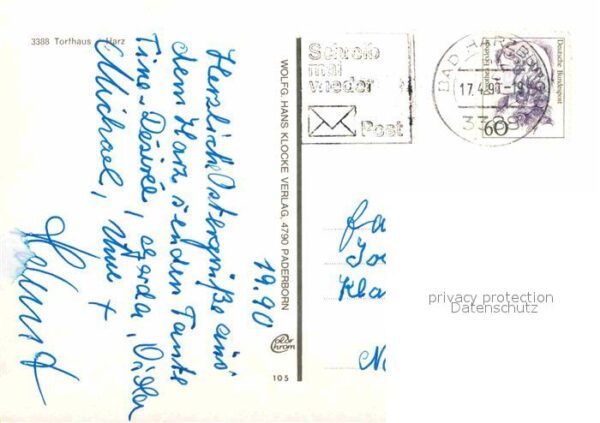 3388 Torfhaus Harz
Herzliche Ostergrüße aus
dem Harz senden Tante
Tine, Désirée, Gerda, Didier
Michael, Uwe +
Helmut
19.90
WOLFG. HANS KLOCKE VERLAG, 4790 PADERBORN
Color
chrom
105
Schreib
mal
wieder
Post
BAD HARZBURG
17.4.90-19
3388
Deutsche Bundespost
60
Fa
Kla
privacy protection
Datenschutz